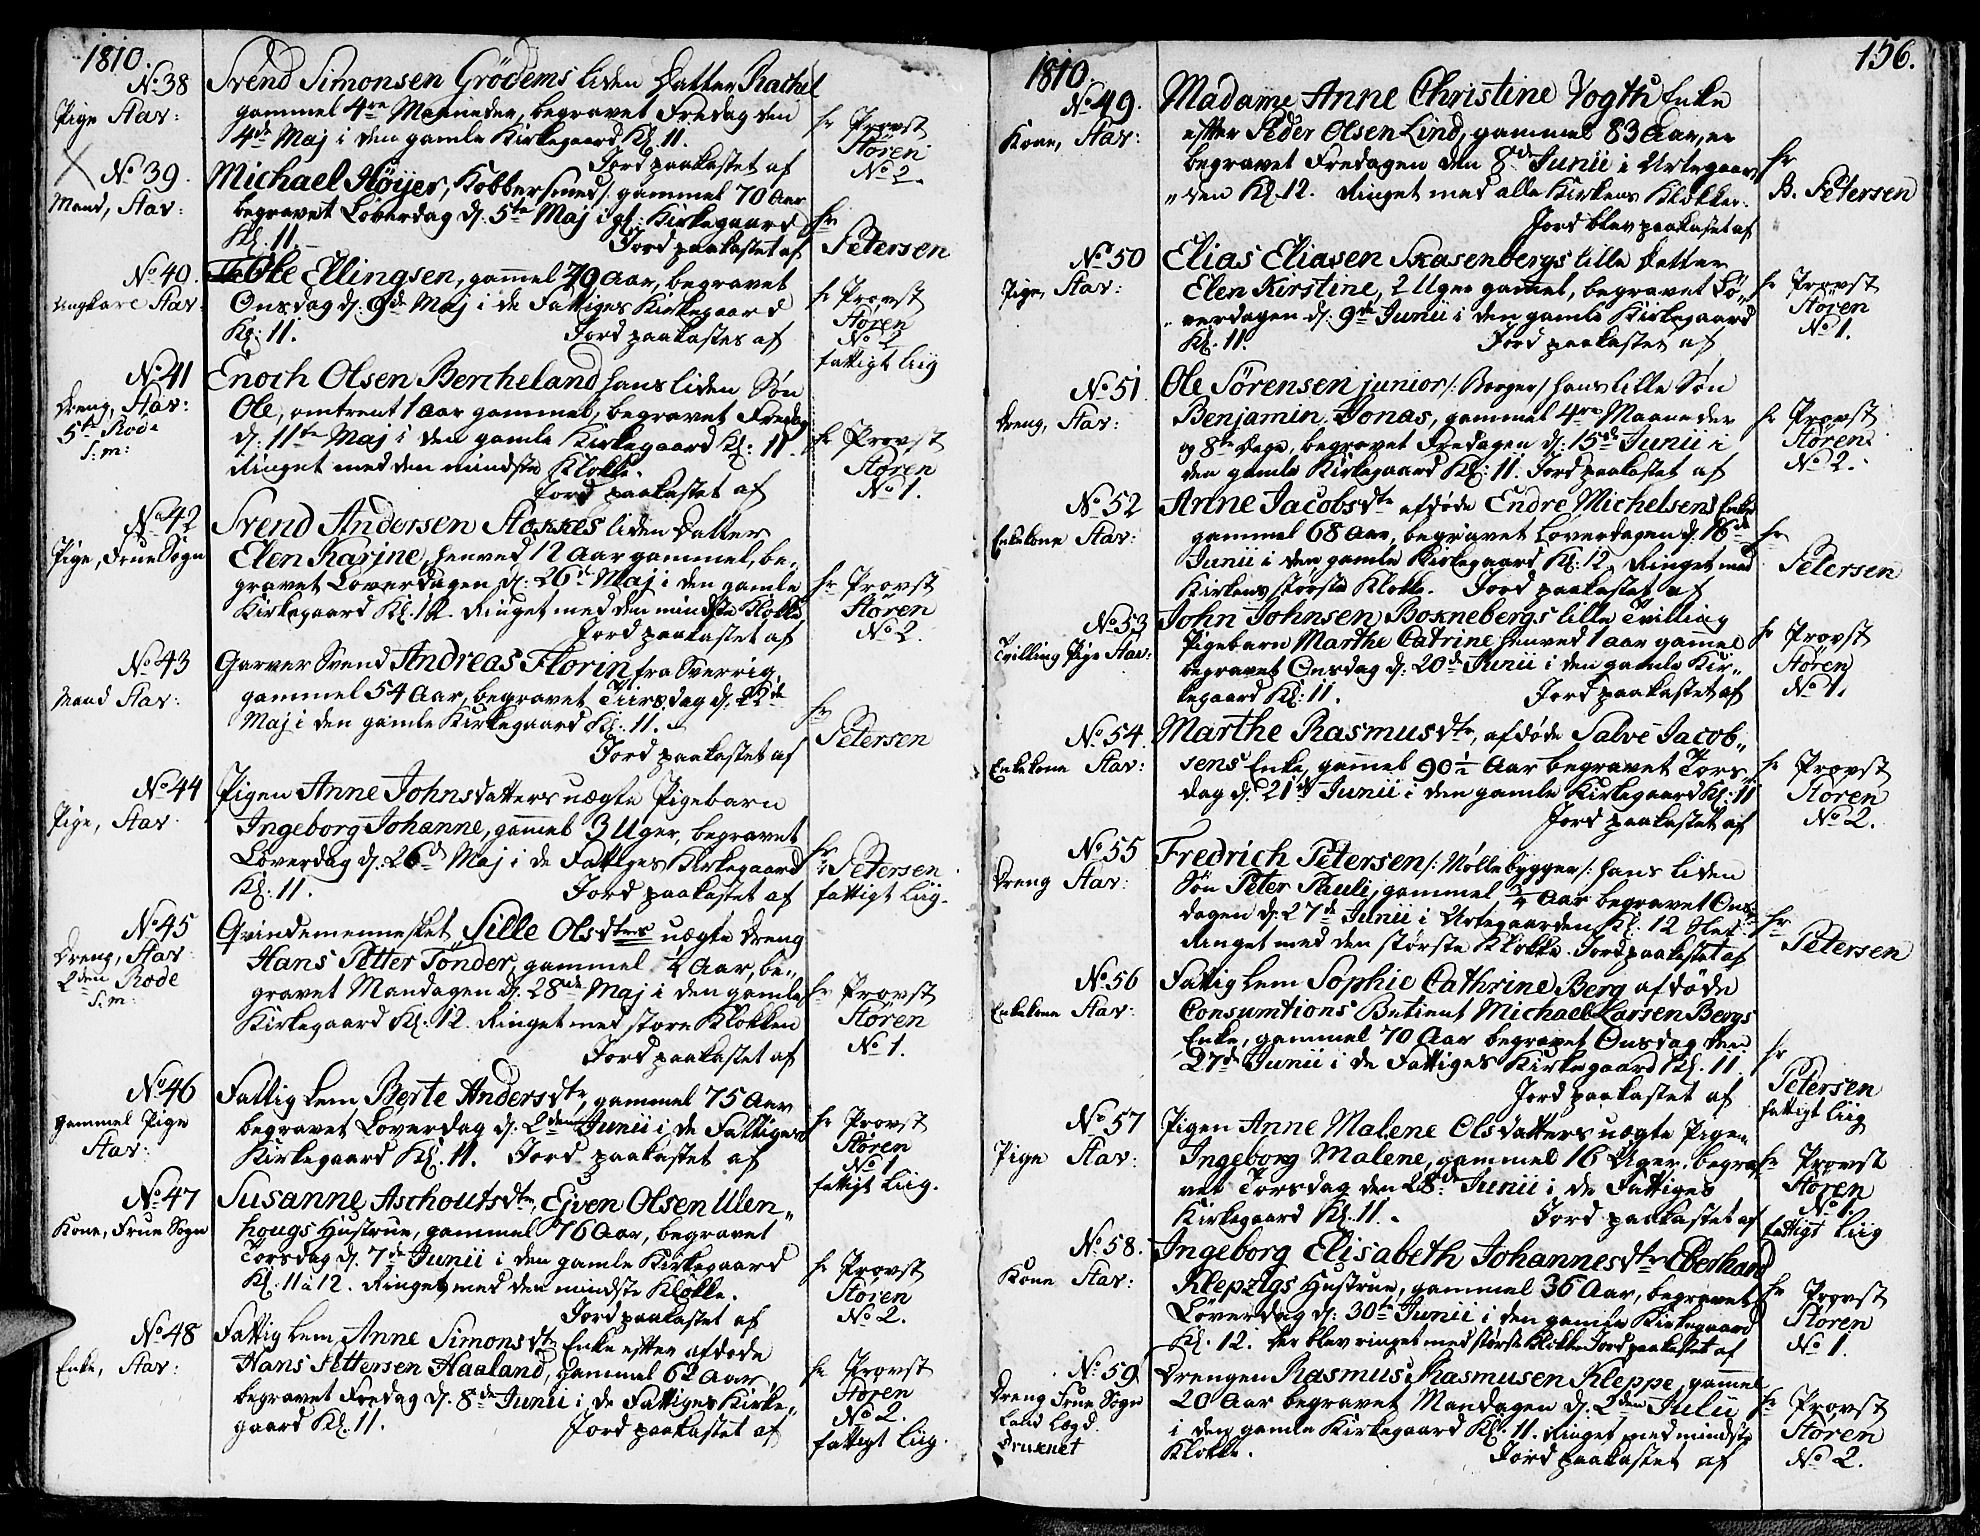 1810.
No. 38
Pige Stav:
Svend Simonsen Grödems liden Datter Rachel
gammel 4re Maaneder, begravet Fredag den
4de Maj i den gamle Kirkegaard Kl. 11.
Jord paakastet af
hr Provst
Støren
No 2.
No. 39.
Mand, Stav:
Michael Høyer, Kobbersmed, gammel 70 Aar
begravet Løverdag d. 5te Maj i gl: Kirkegaard
Kl: 11.
Jord paakastet af
hr
Petersen
No. 40.
Ungkarl Stav:
Ole Ellingsen, gamel 79 Aar, begravet
Onsdag d: 9de Maj i de Fattiges Kirkegaard
Kl: 11.
Jord paakastes af
hr Provst
Støren
No 2
fattigt Liig
No. 41
Dreng, Stav:
5te Rode
S: m:
Enoch Olsen Bercheland hans liden Søn
Ole, omtrent 1 Aar gammel, begravet Fredag
d: 11te Maj i den gamle Kirkegaard Kl: 11.
Ringet med den mindste Klokke.
Jord paakastet af
hr Provst
Støren
No 1.
No. 42
Pige, Frue Sogn
Svend Andersen Stokkes liden Datter
Elen Karine, henved 12 Aar gammel, be-
gravet Løverdagen d: 26de Maj i den gamle
Kirkegaard Kl. 12. Ringet med den mindste Klokke
Jord paakastet af
hr Provst
Støren
No 2.
No. 43
Mand Stav:
Garver Svend Andreas Florin fra Sverrig,
gammel 54 Aar, begravet Tiirsdag d. 22de
Maj i den gamle Kirkegaard Kl: 11.
Jord paakastet af
hr
Petersen
No. 44
Pige, Stav
Pigen Anne Johnsdatters uægte Pigebarn
Ingeborg Johanne, gamel 3 Uger, begravet
Løverdag d. 26de Maj i de Fattiges Kirkegaard
Kl: 11.
Jord paakastet af
hr
Petersen
fattigt Liig.
No. 45
Dreng, Stav
2den Rode
S: m:
Qvindemennesket Sille Olsdters uægte Dreng
Hans Petter Tønder, gammel ½ Aar, be-
gravet Mandagen d: 28de Maj i den gamle
Kirkegaard Kl: 12. Ringet med store Klokken
Jord paakastet af
hr Provst
Støren
No 1.
No. 46
gammel Pige
Stav:
Fattig Lem Berte Andersdtr, gammel 75 Aar
begravet Løverdag d: 2den Junii i de Fattiges
Kirkegaard Kl. 11. Jord paakastet af
hr Provst
Støren
No 1
fattigt Liig.
No. 47
Kone, Frue Sogn
Susanne Aschoutsdtr, Ejven Olsen Ulen-
hougs Hustrue, gammel 76 Aar, begravet
Torsdag d. 7de Junii i den gamle Kirkegaard
Kl. 11 a 12. Ringet med den mindste Klokke.
Jord paakastet af
hr Provst
Støren
No 2.
No. 48
Enke, Stav:
Fattig Lem Anne Simonsdtr Enke efter afdøde
Hans Pettersen Haaland, gammel 62 Aar,
begravet Fredag d. 8de Junii i de Fattiges Kirke-
gaard Kl. 11.
Jord paakastet af
hr Provst
Støren
No 2.
fattigt Liig.
1810.
156.
No. 49.
Kone, Stav:
Madame Anne Christine Vogth Enke
efter Peder Olsen Lind, gammel 83 Aar, er
begravet Fredagen den 8de Junii i Urtegaar-
den Kl. 12. Ringet med alle Kirkens Klokker.
Jord blev paakastet af
hr
B. Petersen
No. 50
Pige, Stav:
Elias Eliasen Skasenbergs lille Datter
Elen Kirstine, 2 Uger gamel, begravet Lø-
verdagen d: 9de Junii i den gamle Kirkegaard
Kl: 11.
Jord paakastet af
hr Provst
Støren
No 1.
No. 51
Dreng, Stav:
Ole Sørensen junior /: Borger / hans lille Søn
Benjamin Jonas, gammel 4re Maaneder
og 8te Dage, begravet Fredagen d: 15de Junii i
den gamle Kirkegaard Kl: 11. Jord paakastet af
hr Provst
Støren
No 2.
No. 52
Enkekone Stav:
Anne Jacobsdtr afdøde Endre Michelsens Enke
gammel 68 Aar, begravet Løverdagen d. 16de
Junii i den gamle Kirkegaard Kl: 12, Ringet med
Kirkens største Klokke. Jord paakastet af
hr
Petersen
No. 53
Tvilling Pige Stav:
John Johnsen Boknebergs lille Tvilling
Pigebarn Marthe Catrine henved 1 aar gamel
begravet Onsdag d: 20de Junii i den gamle Kir-
kegaard Kl: 11.
Jord paakastet af
hr Provst
Støren
No 1.
No. 54.
Enkekone Stav:
Marthe Rasmusdtr, afdøde Salve Jacob-
sens Enke, gamel 90½ Aar begravet Tors-
dag d. 21de Junii i den gamle Kirkegaard Kl: 11
Jord paakastet af
hr Provst
Støren
No 2.
No. 55
Dreng Stav:
Fredrich Petersen /: Møllebygger /: hans liden
Søn Peter Pauli, gammel ¼ Aar begravet Ons-
dagen d. 27de Junii i Urtegaarden Kl. 12 Slet
Ringet med den største Klokke. Jord paakastet af
hr
Petersen
No. 56
Enkekone Stav:
Fattig Lem Sophie Cathrine Berg afdøde
Consumtions Betient Michael Larsen Bergs
Enke, gammel 70 Aar begravet Onsdag den
27de Junii i de Fattiges Kirkegaard Kl. 11
Jord paakastet af
hr
Petersen
fattigt Liig
No. 57
Pige Stav:
Pigen Anne Malene Olsdatters uægte Pige
Ingeborg Malene, gammel 16 Uger, begra-
vet Torsdag den 28de Junii i de Fattiges
Kirkegaard Kl. 11.
Jord paakastet af
hr Provst
Støren
No 1.
fattigt Liig
No. 58.
Kone Stav:
Ingeborg Elisabeth Johannesdtr Eberhard
Klepzigs Hustrue, gammel 36 Aar, begravet
Løverdag d: 30te Junii i den gamle Kirkegaard
Kl. 12. Der blev ringet med største Klokke Jord paakastet af
hr Provst
Støren
No 1.
No. 59
Dreng Frue Sogn
Land Lægd.
Druknet
Drengen Rasmus Rasmusen Kleppe, gamel
20 Aar begravet Mandagen d. 2den Julii
i den gamle Kirkegaard Kl. 11. Ringet med mindste
Klokke.
Jord paakastet af
hr Provst
Støren
No 2.